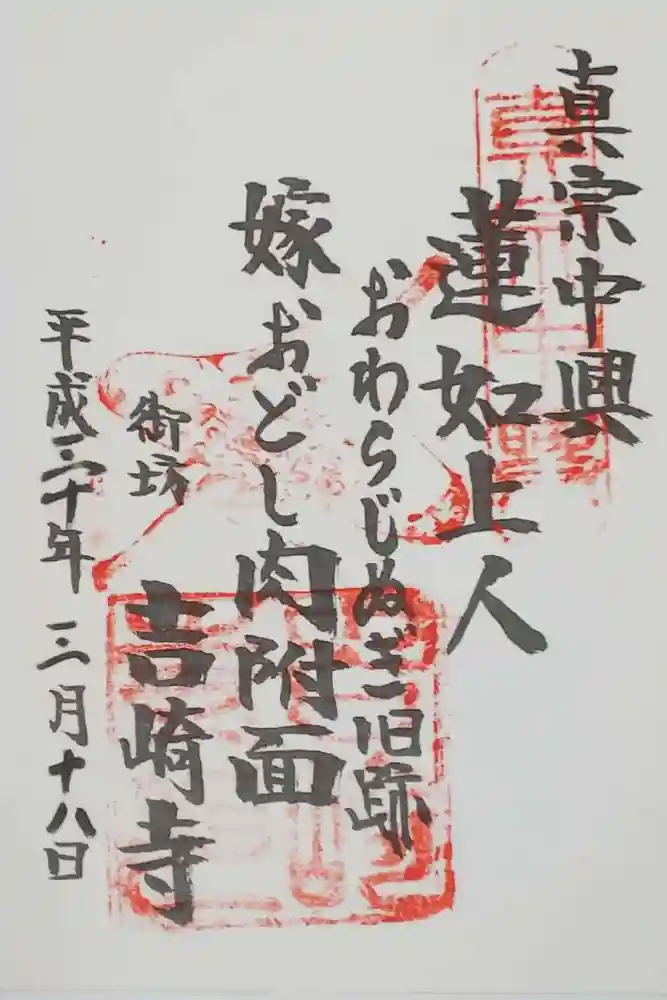 真宗中興
蓮如上人
おわらじぬぎ旧跡
嫁おどし肉附面
御坊
吉崎寺
平成三十年三月十八日